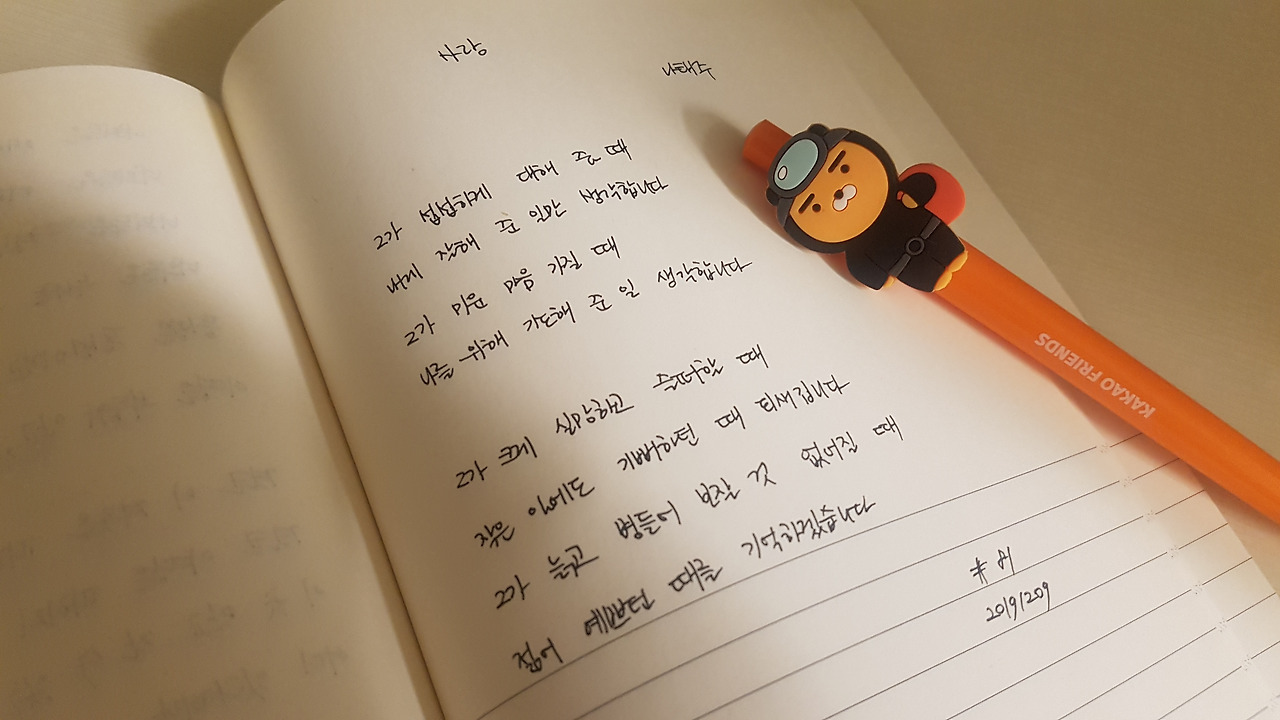 사랑
나태주
그가 섭섭하게 대해 준 때
내게 잘해 준 일만 생각합니다
그가 미운 마음 가질 때
나를 위해 기도해 준 일 생각합니다
그가 크게 실망하고 슬퍼할 때
작은 일에도 기뻐하던 때 되새깁니다
그가 늙고 병들어 보잘 것 없어질 때
젊어 예쁘던 때를 기억하겠습니다
# 81
20191209
KAKAO FRIENDS